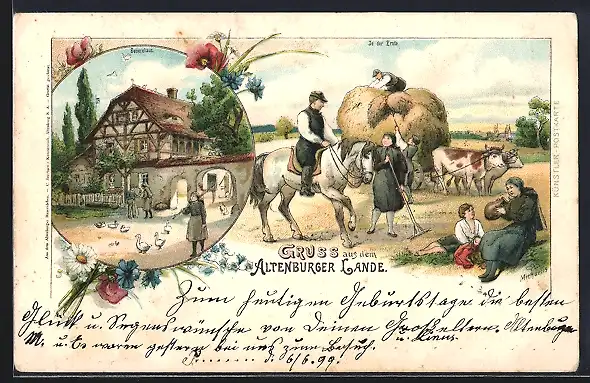 Bauernhaus.
In der Ernte
KÜNSTLER-POSTKARTE
GRUSS aus dem
ALTENBURGER LANDE.
Zum heutigen Geburtstage die besten
Glück u. Segenswünsche von Deinen Großeltern. Altenburg
M. u. Es waren gestern bei uns zum Besuch. u.
d. 6/6. 99.